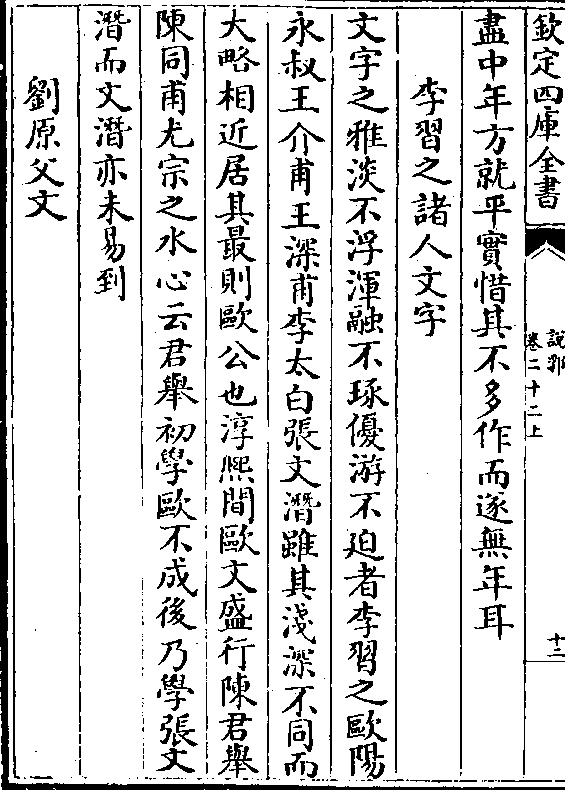 欽定四庫全書
說郛
卷二十二上
十二
盡中年方就平實惜其不多作而遂無年耳
李習之諸人文字
文字之雅淡不浮渾融不琢優游不迫者李習之歐陽
永叔王介甫王深甫李太白張文潛雖其淺深不同而
大略相近居其最則歐公也淳熙間歐文盛行陳君舉
陳同甫尤宗之水心云君舉初學歐不成後乃學張文
潛而文潛亦未易到
劉原父文